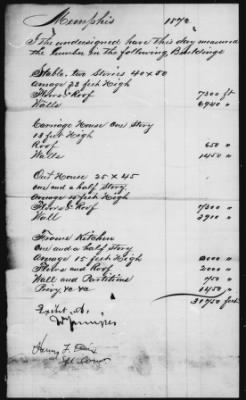 Memphis 1870
I the undersigned have this day measured
the Lumber in the following Buildings
Stable. two Stories 40 x 50
avrage 22 feet High
Floors & Roof 7300 ft
Walls 6940 "
Carriage House one Story
18 feet High
Roof 650 "
Walls 1450 "
Out House 25 x 45
one and a half Story
avrage 15 feet High
Floors & Roof 7300 "
Wall 2900 "
Frame Kitchen
one and a half Story
avrage 15 feet High 2000 "
Floors and Roof 2000 "
Wall and Partitions 750 "
Privy &c &c 1450 "
31750 feet